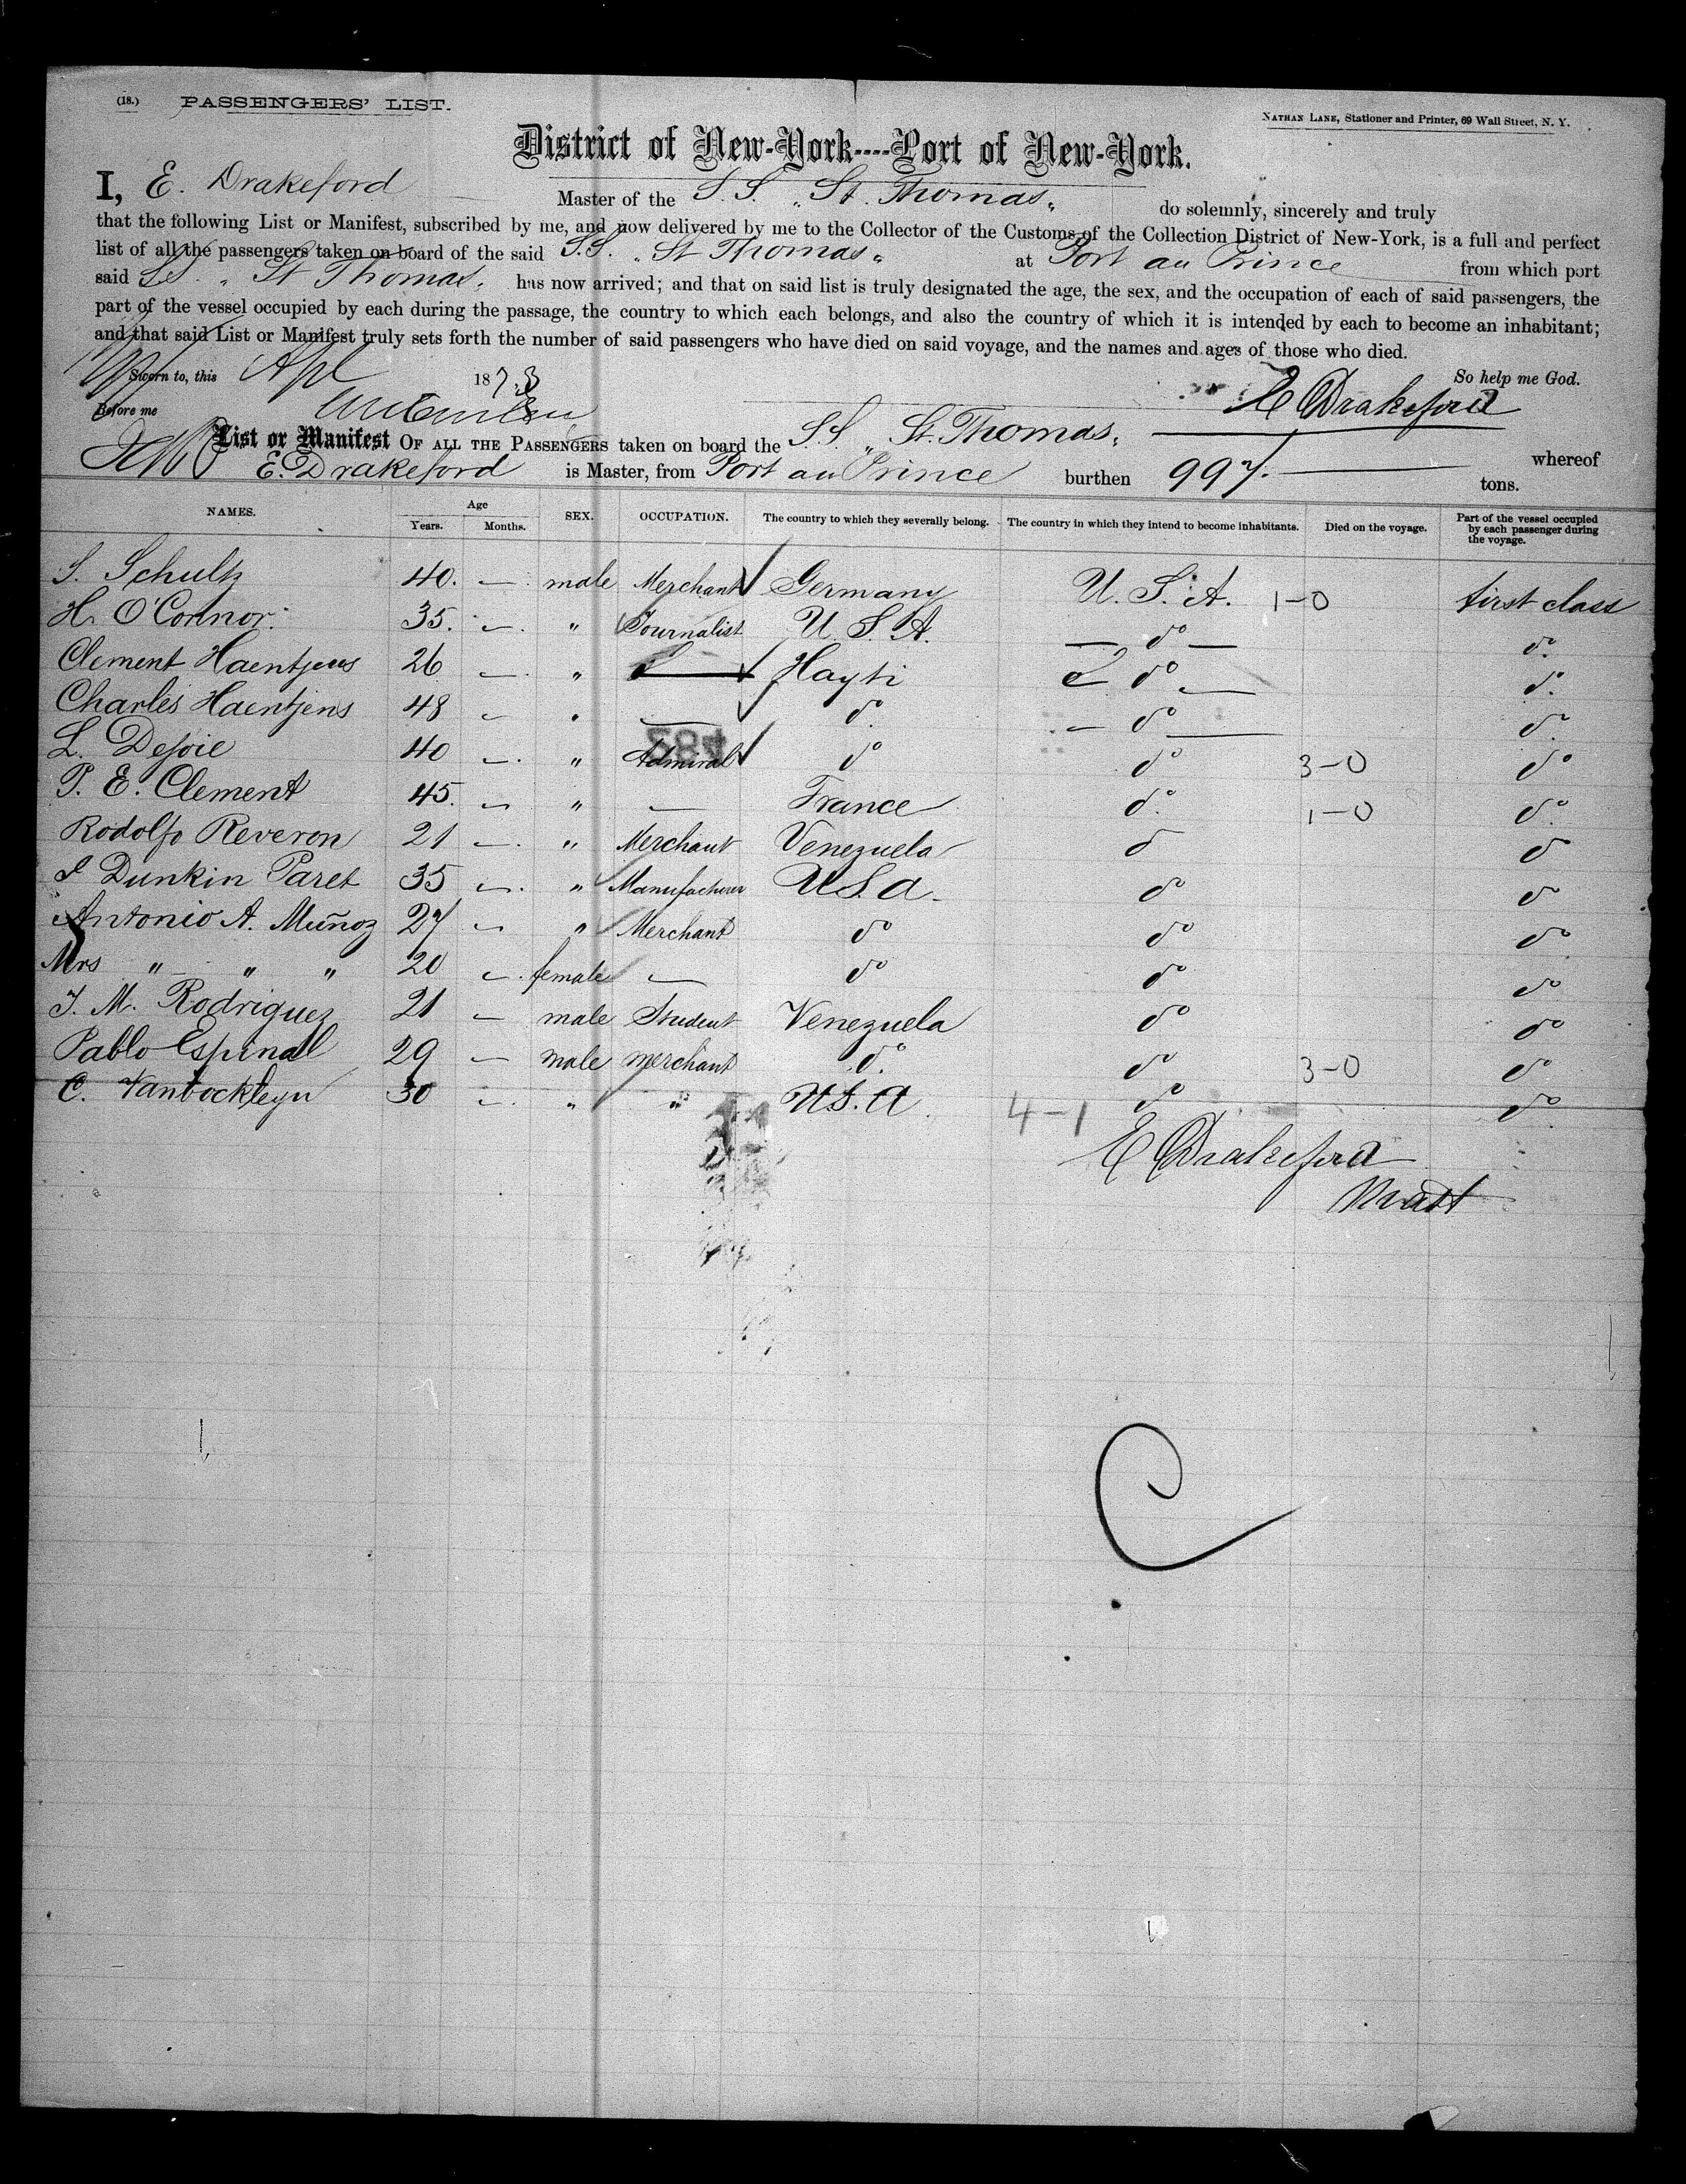 (18.) PASSENGERS' LIST.
NATHAN LANE, Stationer and Printer, 69 Wall Street, N. Y.
District of New-York----Port of New-York.
I, E. Drakeford Master of the S.S. "St. Thomas" do solemnly, sincerely and truly
that the following List or Manifest, subscribed by me, and now delivered by me to the Collector of the Customs of the Collection District of New-York, is a full and perfect
list of all the passengers taken on board of the said S.S. "St Thomas" at Port au Prince from which port
said SS. "St Thomas" has now arrived; and that on said list is truly designated the age, the sex, and the occupation of each of said passengers, the
part of the vessel occupied by each during the passage, the country to which each belongs, and also the country of which it is intended by each to become an inhabitant;
and that said List or Manifest truly sets forth the number of said passengers who have died on said voyage, and the names and ages of those who died.
Sworn to, this Apl 1873 So help me God.
Before me E Drakeford
List or Manifest OF ALL THE PASSENGERS taken on board the S.S. "St. Thomas" whereof
E. Drakeford is Master, from Port au Prince burthen 997. tons.
NAMES. Age Years. Months. SEX. OCCUPATION. The country to which they severally belong. The country in which they intend to become inhabitants. Died on the voyage. Part of the vessel occupied by each passenger during the voyage.
S. Schultz 40. — male Merchant Germany U. S. A. 1-0 first class
H. O'Connor. 35. — " Journalist U. S. A. — do — do.
Clement Haentjens 26 — " — Hayti do — do.
Charles Haentjens 48 — " — do. — do — do.
L. Dejoie 40 — " Admiral do do 3-0 do
P. E. Clement 45. — " — France do. 1-0 do.
Rodolfo Reveron 21 — " Merchant Venezuela do do
Dunkin Paret 35 — " Manufacturer U.S.A. do do
Antonio A. Muñoz 27 — " Merchant do do do
Mrs " " " 20 — female — do do do
J. M. Rodriguez 21 — male Student Venezuela do do
Pablo Espinal 29 — male merchant do. do 3-0 do
C. Vanbockleyn 30 — " " U.S.A. 4-1 do do.
E Drakeford
Mast